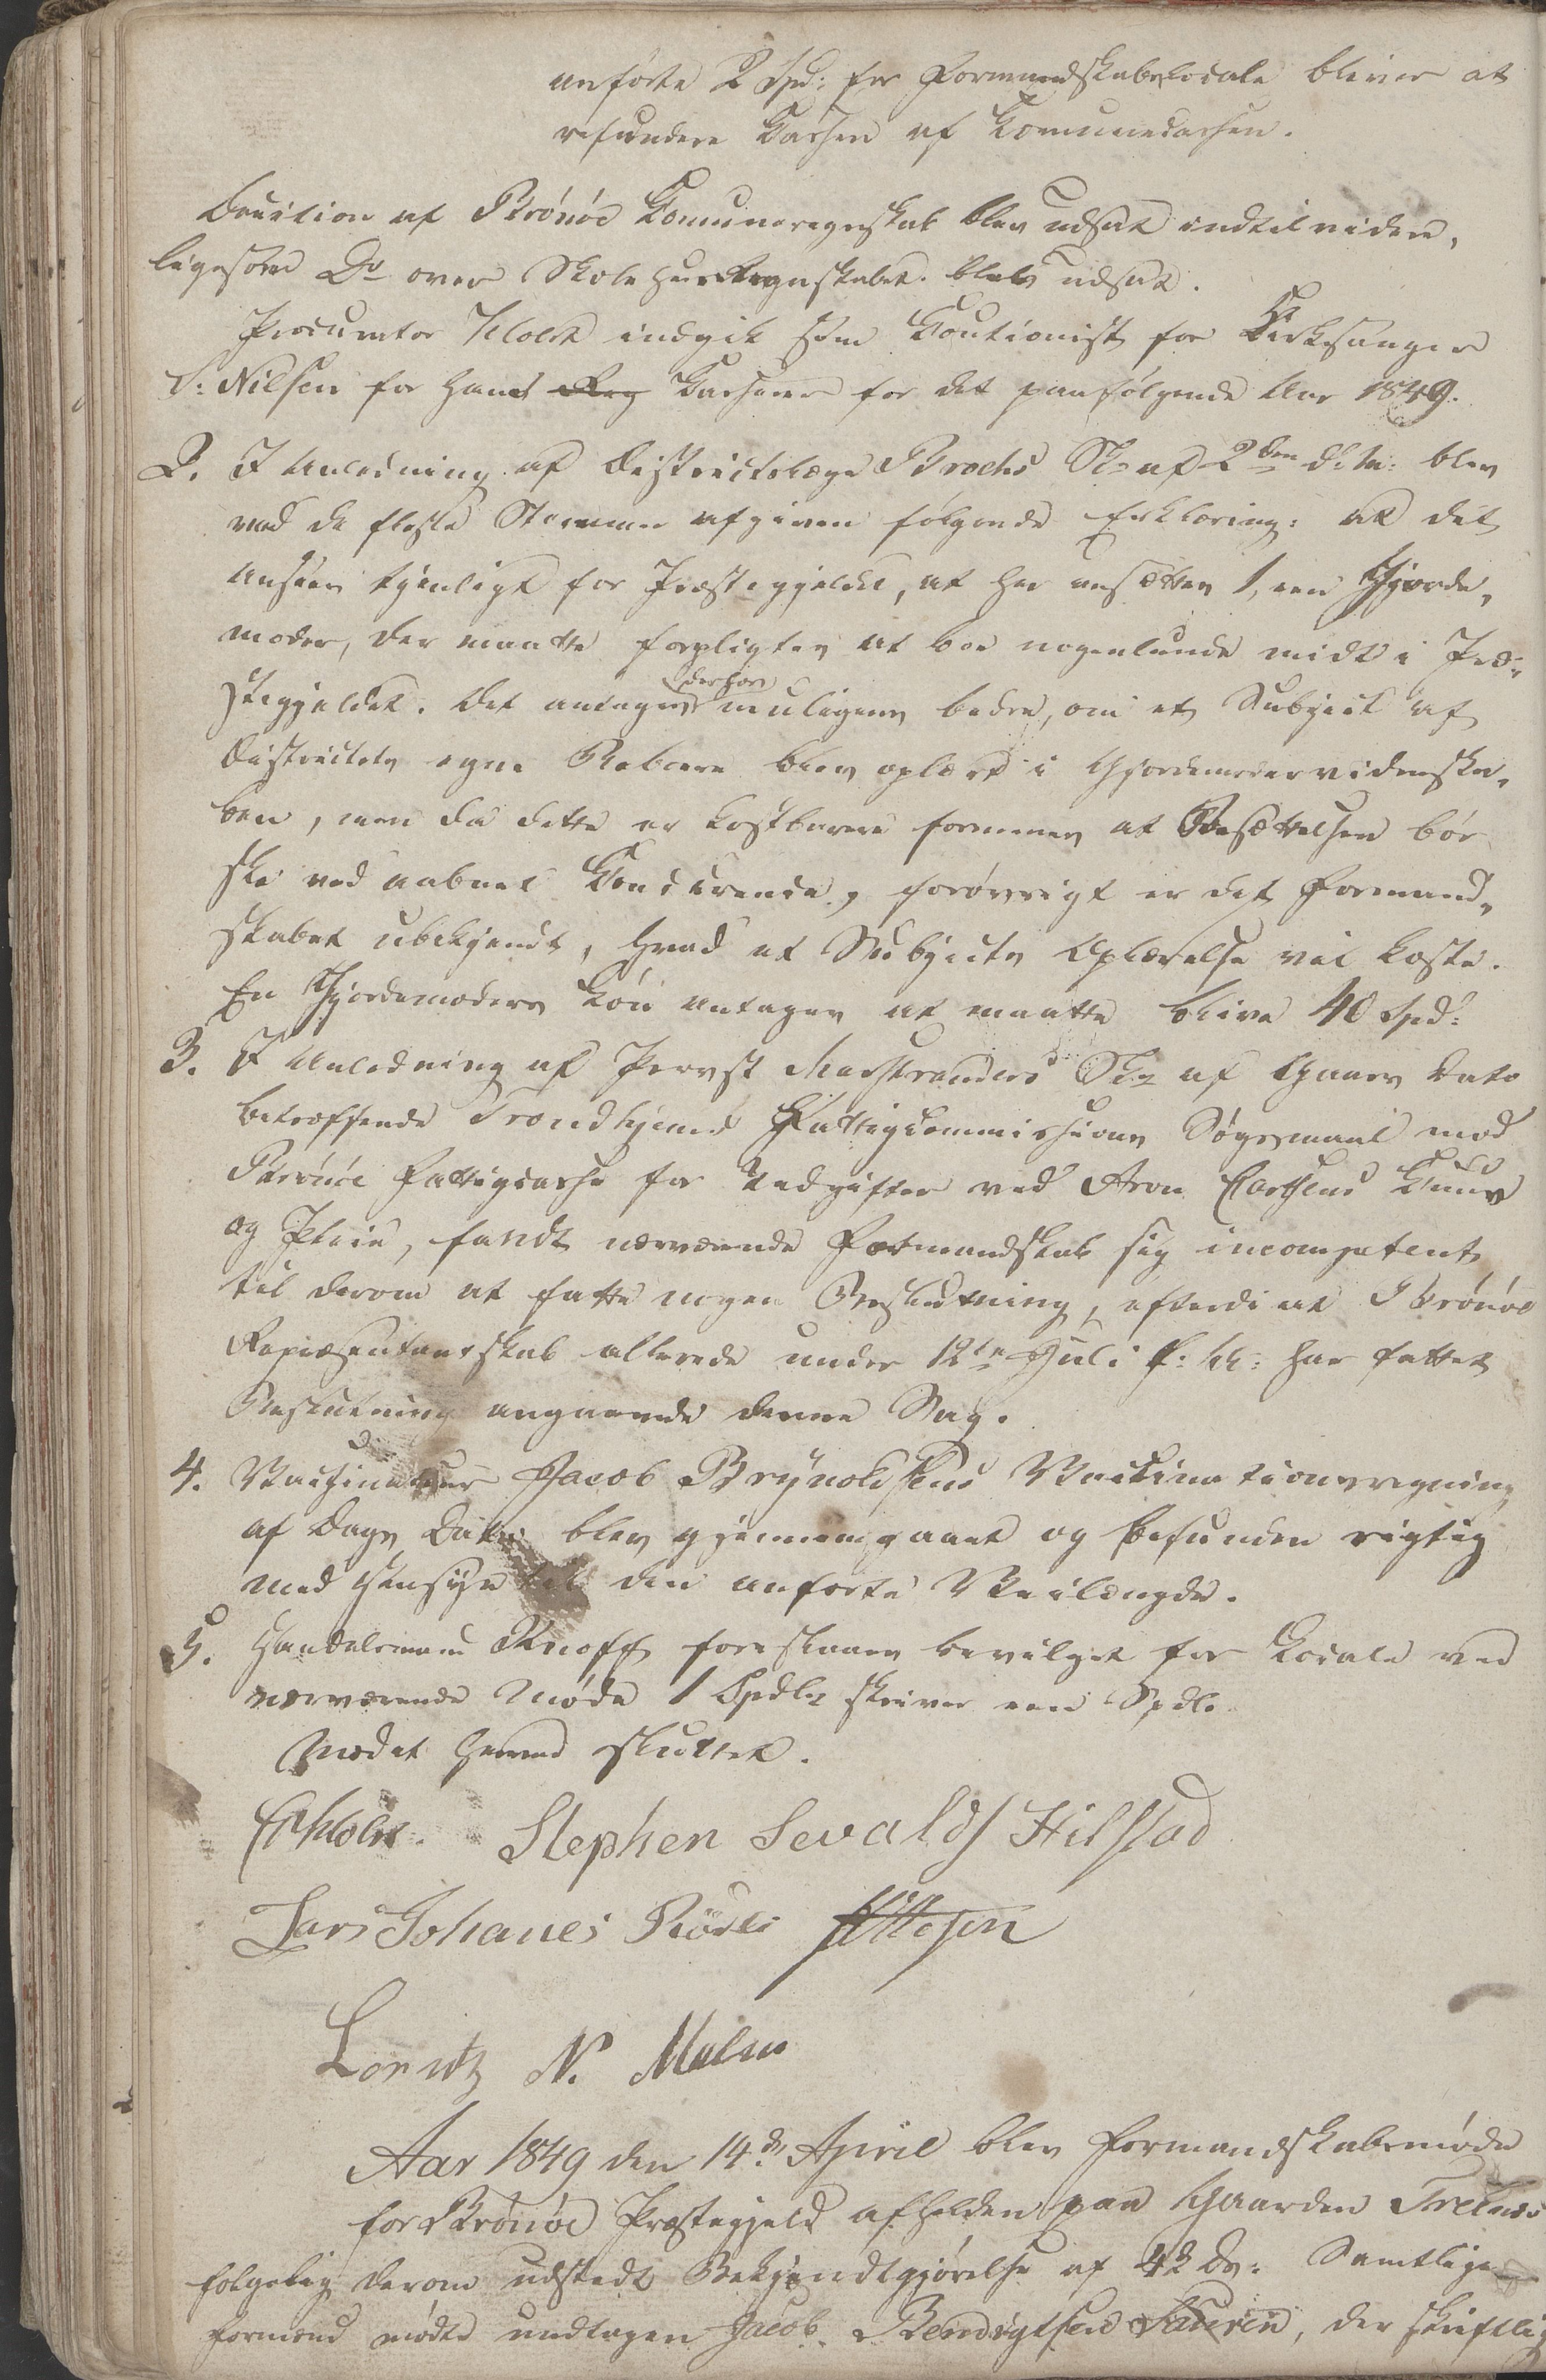 anførte 2 Spd: for Formandskabslocale bliver at
refundere Cassen af Communecassen.
Decision af Brønøe Communeregnskab blev udsat indtil videre,
ligesom Do over Skolehuusregnskabet blev udsat.
Procurator Klolst indgik som Cautionist for Kirkesanger
S: Nilsen for hans Reg Casserer for det paafølgende Aar 1849.
2. I Anledning af Districtslæge Brochs Skr af 2den d. M: blev
ved de fleste Stemmer afgiven følgende Erklæring: at det
ansees tjenligt for Præstegjeldet, at her ansættes 1, een Gjorde-
moder, der maatte forpligtes at boe nogenlunde midt i Præ-
stegjeldet. Det antages derhos muligens bedre, om et Subject af
Districtets egne Beboere blev oplært i Gjordemodervidenska-
ben, men da dette er kostbarere formenes at Besættelsen bør
ske ved aabnet Concurence, forøvrigt er det Formand-
skabet ubekjendt, hvad et Subjects Oplærelse vil koste.
En Gjordemoders Løn antages at maatte blive 40 Spd:
3. I Anledning af Provst Marstranders Skr af Gaars Dato
betræffende Trondhjems Fattigcommissions Søgsmaal mod
Brønøe Fattigcasse for Udgifter ved Aron Carlsens Kuur
og Pleie, fandt nærværende Formandskab sig incompetent
til derom at fatte nogen Beslutning, efterdi at Brønøe
Repræsentantskab allerede under 12te Juli f: A: har fattet
Beslutning angaaende denne Sag.
4. Vaccinateur Jacob Brynoldsens Vaccinationsregning
af Dags Dato blev gjennemgaaet og befunden rigtig
med Hensyn til den anførte Veilængde.
5. Handelsmand Knoff foreslaaes bevilget for Locale ved
nærværende Møde 1 Spdlr skriver een Spdlr.
Mødet hermed sluttet.
Stephen Sevalds Hilstad
Lars Johanes Ottesen
Lorntz N. Mælen
Aar 1849 den 14d April blev Formandskabsmøde
for Brønøe Præstegjeld afholden paa Gaarden Trelnes
følgelig derom udstedt Bekjendtgjørelse af 4de ds: Samtlige
Formænd mødte undtagen Jacob Bendigtsen, der skriftlig